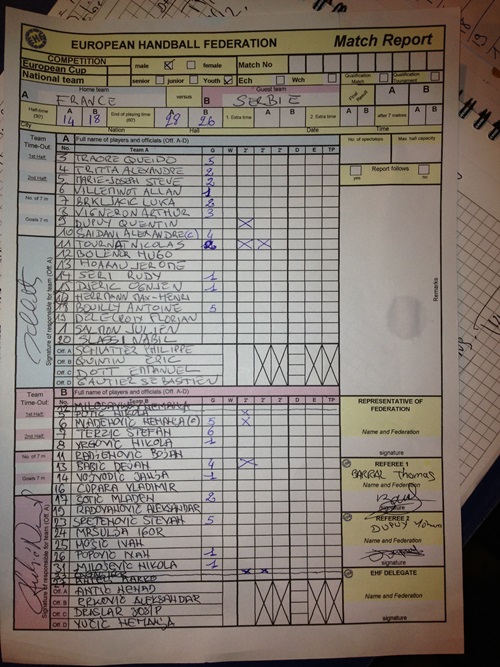 EUROPEAN HANDBALL FEDERATION Match Report
COMPETITION male female Match No
European Cup
National team senior junior Youth Ech Wch Qualification Match Qualification Tournament
Home team Guest team
A FRANCE versus B SERBIE A B
Half-time (30') A 14 B 18 End of playing time (60') A 28 B 26 1. Extra time A B 2. Extra time A B after 7 metres A B
City Nation Hall Date Time
Team Time-Out A Full name of players and officials (Off. A-D) No. of spectators Max. hall capacity
No. Team A G W 2' 2' 2' D E TP
1st Half: 3 TRAORE QUEIDO 5
4 TRITTA ALEXANDRE 2
2nd Half: 5 MARIE-JOSEPH STEVE 2
6 VILLEMINOT ALLAN 1
No. of 7 m 7 BRKLJACIC LUKA
8 VIGNERON ARTHUR 3
Goals 7 m 9 DUPUY QUENTIN X
10 SAIDANI ALEXANDRE(C) 4
11 TOURNAT NICOLAS 2 X X
12 HUGO
13 HOARAU JEROME
14 SERI RUDY 1
15 OGNJEN 1
HERRMANN MAX-HENRI
BOUILLY ANTOINE 5
FLORIAN
1 SALMON JULIEN
20 SLASSI NABIL
Off. A SCHLATTER PHILIPPE
Off. B QUINTIN ERIC
Off. C DOTT EMMANUEL
Off. D GAUTIER SEBASTIEN
Signature of responsible for team (Off. A)
Report follows
yes no
Remarks
B Full name of players and officials (Off. A-D)
Team Time-Out No. Team B G W 2' 2' 2' D E TP
1st Half: NIKOLA X
6 MLADENOVIC NEMANJA(C) 5 X
2nd Half: TERZIC STEFAN 6
8 NIKOLA 1
No. of 7 m 11 RADJENOVIC BOJAN
13 BABIC DEJAN 4 X
Goals 7 m 14 VOJNODIC JANJA 1
16 COPARA VLADIMIR
17 COTIC MLADEN 2
19 RADOVANOVIC ALEKSANDAR
STEVAN 5
24 MRSULJA IGOR
25 IVAN
26 POPOVIC IVAN 1
31 MILOSEVIC NIKOLA 1
X X
Off. A ANTIC NENAD
Off. B BRKOVIC ALEKSANDAR
Off. C JOSIP
Off. D VUCIC NEMANJA
Signature of responsible for team (Off. A)
REPRESENTATIVE OF FEDERATION
Name and Federation
signature
REFEREE 1
BARRAL Thomas
Name and Federation
signature
REFEREE 2
DUPUY Yohan
Name and Federation
signature
EHF DELEGATE
Name and Federation
signature